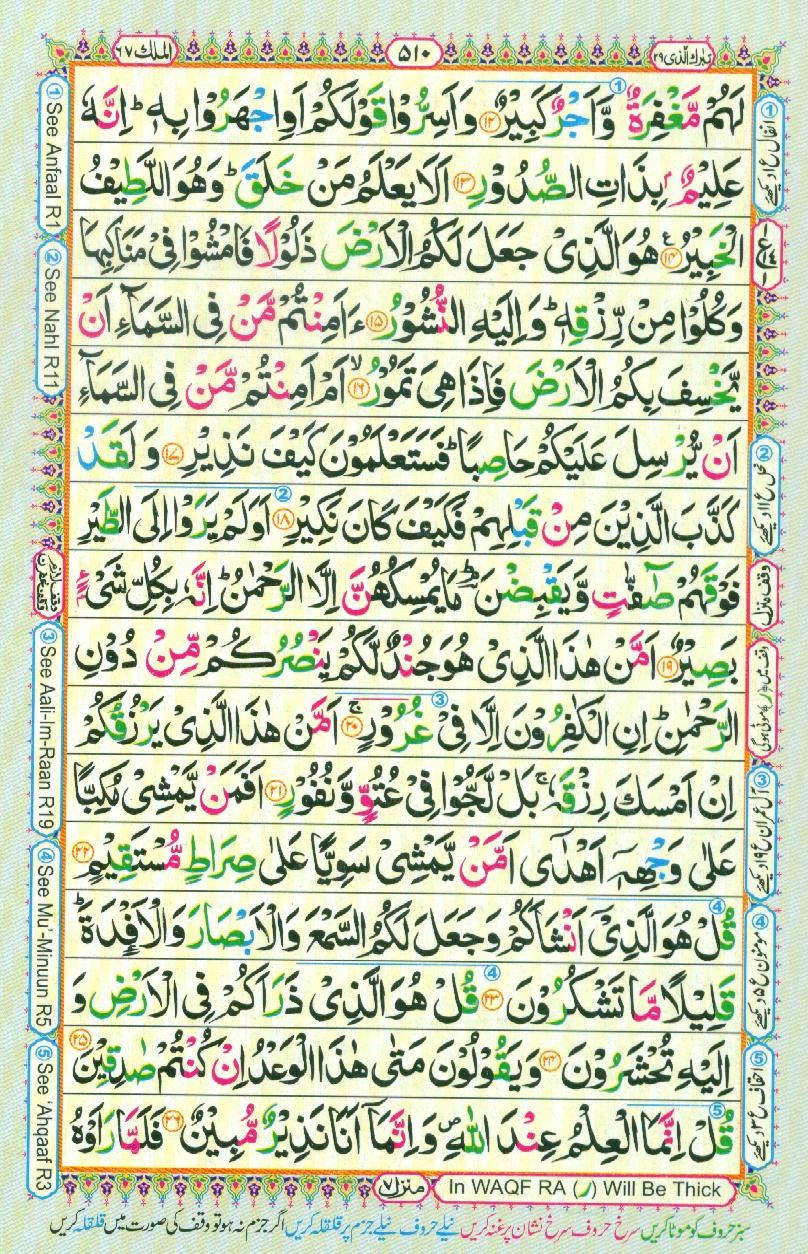 الملك ٦٧
٥١٠
تبٰرك الّذى ٢٩
لَهُمْ مَّغْفِرَةٌ وَّاَجْرٌ كَبِيْرٌ ﴿۱۲﴾ وَاَسِرُّوْا قَوْلَكُمْ اَوِ اجْهَرُوْا بِهٖ ؕ اِنَّهٗ
عَلِيْمٌۢ بِذَاتِ الصُّدُوْرِ ﴿۱۳﴾ اَلَا يَعْلَمُ مَنْ خَلَقَ ؕ وَهُوَ اللَّطِيْفُ
الْخَبِيْرُ ﴿۱۴﴾ هُوَ الَّذِىْ جَعَلَ لَكُمُ الْاَرْضَ ذَلُوْلًا فَامْشُوْا فِىْ مَنَاكِبِهَا
وَكُلُوْا مِنْ رِّزْقِهٖ ؕ وَاِلَيْهِ النُّشُوْرُ ﴿۱۵﴾ ءَاَمِنْتُمْ مَّنْ فِى السَّمَآءِ اَنْ
يَّخْسِفَ بِكُمُ الْاَرْضَ فَاِذَا هِىَ تَمُوْرُ ۙ﴿۱۶﴾ اَمْ اَمِنْتُمْ مَّنْ فِى السَّمَآءِ
اَنْ يُّرْسِلَ عَلَيْكُمْ حَاصِبًا ؕ فَسَتَعْلَمُوْنَ كَيْفَ نَذِيْرِ ﴿۱۷﴾ وَلَقَدْ
كَذَّبَ الَّذِيْنَ مِنْ قَبْلِهِمْ فَكَيْفَ كَانَ نَكِيْرِ ﴿۱۸﴾ اَوَلَمْ يَرَوْا اِلَى الطَّيْرِ
فَوْقَهُمْ صٰٓفّٰتٍ وَّيَقْبِضْنَ ؔۘ ؕ مَا يُمْسِكُهُنَّ اِلَّا الرَّحْمٰنُ ؕ اِنَّهٗ بِكُلِّ شَىْءٍۢ
بَصِيْرٌ ﴿۱۹﴾ اَمَّنْ هٰذَا الَّذِىْ هُوَ جُنْدٌ لَّكُمْ يَنْصُرُكُمْ مِّنْ دُوْنِ
الرَّحْمٰنِ ؕ اِنِ الْكٰفِرُوْنَ اِلَّا فِىْ غُرُوْرٍ ۚ﴿۲۰﴾ اَمَّنْ هٰذَا الَّذِىْ يَرْزُقُكُمْ
اِنْ اَمْسَكَ رِزْقَهٗ ۚ بَلْ لَّجُّوْا فِىْ عُتُوٍّ وَّنُفُوْرٍ ﴿۲۱﴾ اَفَمَنْ يَّمْشِىْ مُكِبًّا
عَلٰى وَجْهِهٖۤ اَهْدٰٓى اَمَّنْ يَّمْشِىْ سَوِيًّا عَلٰى صِرَاطٍ مُّسْتَقِيْمٍ ﴿۲۲﴾
قُلْ هُوَ الَّذِىْۤ اَنْشَاَكُمْ وَجَعَلَ لَكُمُ السَّمْعَ وَالْاَبْصَارَ وَالْاَفْـِٕدَةَ ؕ
قَلِيْلًا مَّا تَشْكُرُوْنَ ﴿۲۳﴾ قُلْ هُوَ الَّذِىْ ذَرَاَكُمْ فِى الْاَرْضِ وَ
اِلَيْهِ تُحْشَرُوْنَ ﴿۲۴﴾ وَيَقُوْلُوْنَ مَتٰى هٰذَا الْوَعْدُ اِنْ كُنْتُمْ صٰدِقِيْنَ ﴿۲۵﴾
قُلْ اِنَّمَا الْعِلْمُ عِنْدَ اللّٰهِ ۪ وَاِنَّمَاۤ اَنَا نَذِيْرٌ مُّبِيْنٌ ﴿۲۶﴾ فَلَمَّا رَاَوْهُ
① See Anfaal R1
② See Nahl R11
③ See Aali-Im-Raan R19
④ See Mu'-Minuun R5
⑤ See 'Ahqaaf R3
① انفال ع ١ دیکھئے
② نحل ع ١١ دیکھئے
وقف منزل
③ آل عمران ع ١٩ دیکھئے
④ مومنون ع ٥ دیکھئے
⑤ احقاف ع ٣ دیکھئے
منزل ٧
In WAQF RA (ر) Will Be Thick
سبز حروف کو موٹا کریں سرخ حروف سرخ نشان پر غنہ کریں نیلے حروف نیلے جزم پر قلقلہ کریں اگر جزم نہ ہو تو وقف کی صورت میں قلقلہ کریں